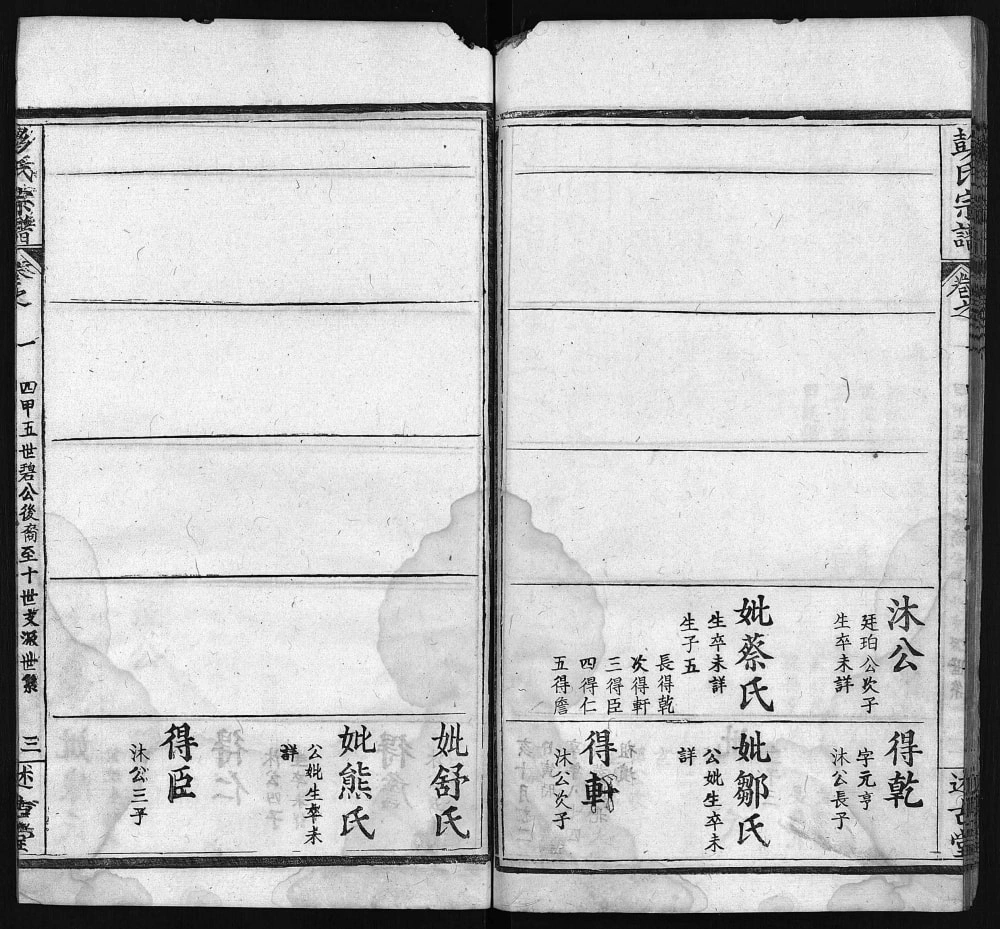 彭氏宗譜
卷之
一
述古堂
沐公
廷珀公次子
生卒未詳
妣蔡氏
生卒未詳
生子五
長得乾
次得軒
三得臣
四得仁
五得詹
得乾
字元亨
沐公長子
妣鄒氏
公妣生卒未
詳
得軒
沐公次子
妣舒氏
妣熊氏
公妣生卒未
詳
得臣
沐公三子
彭氏宗譜
卷之
一
四甲五世碧公後裔至十世支派世系
三
述古堂